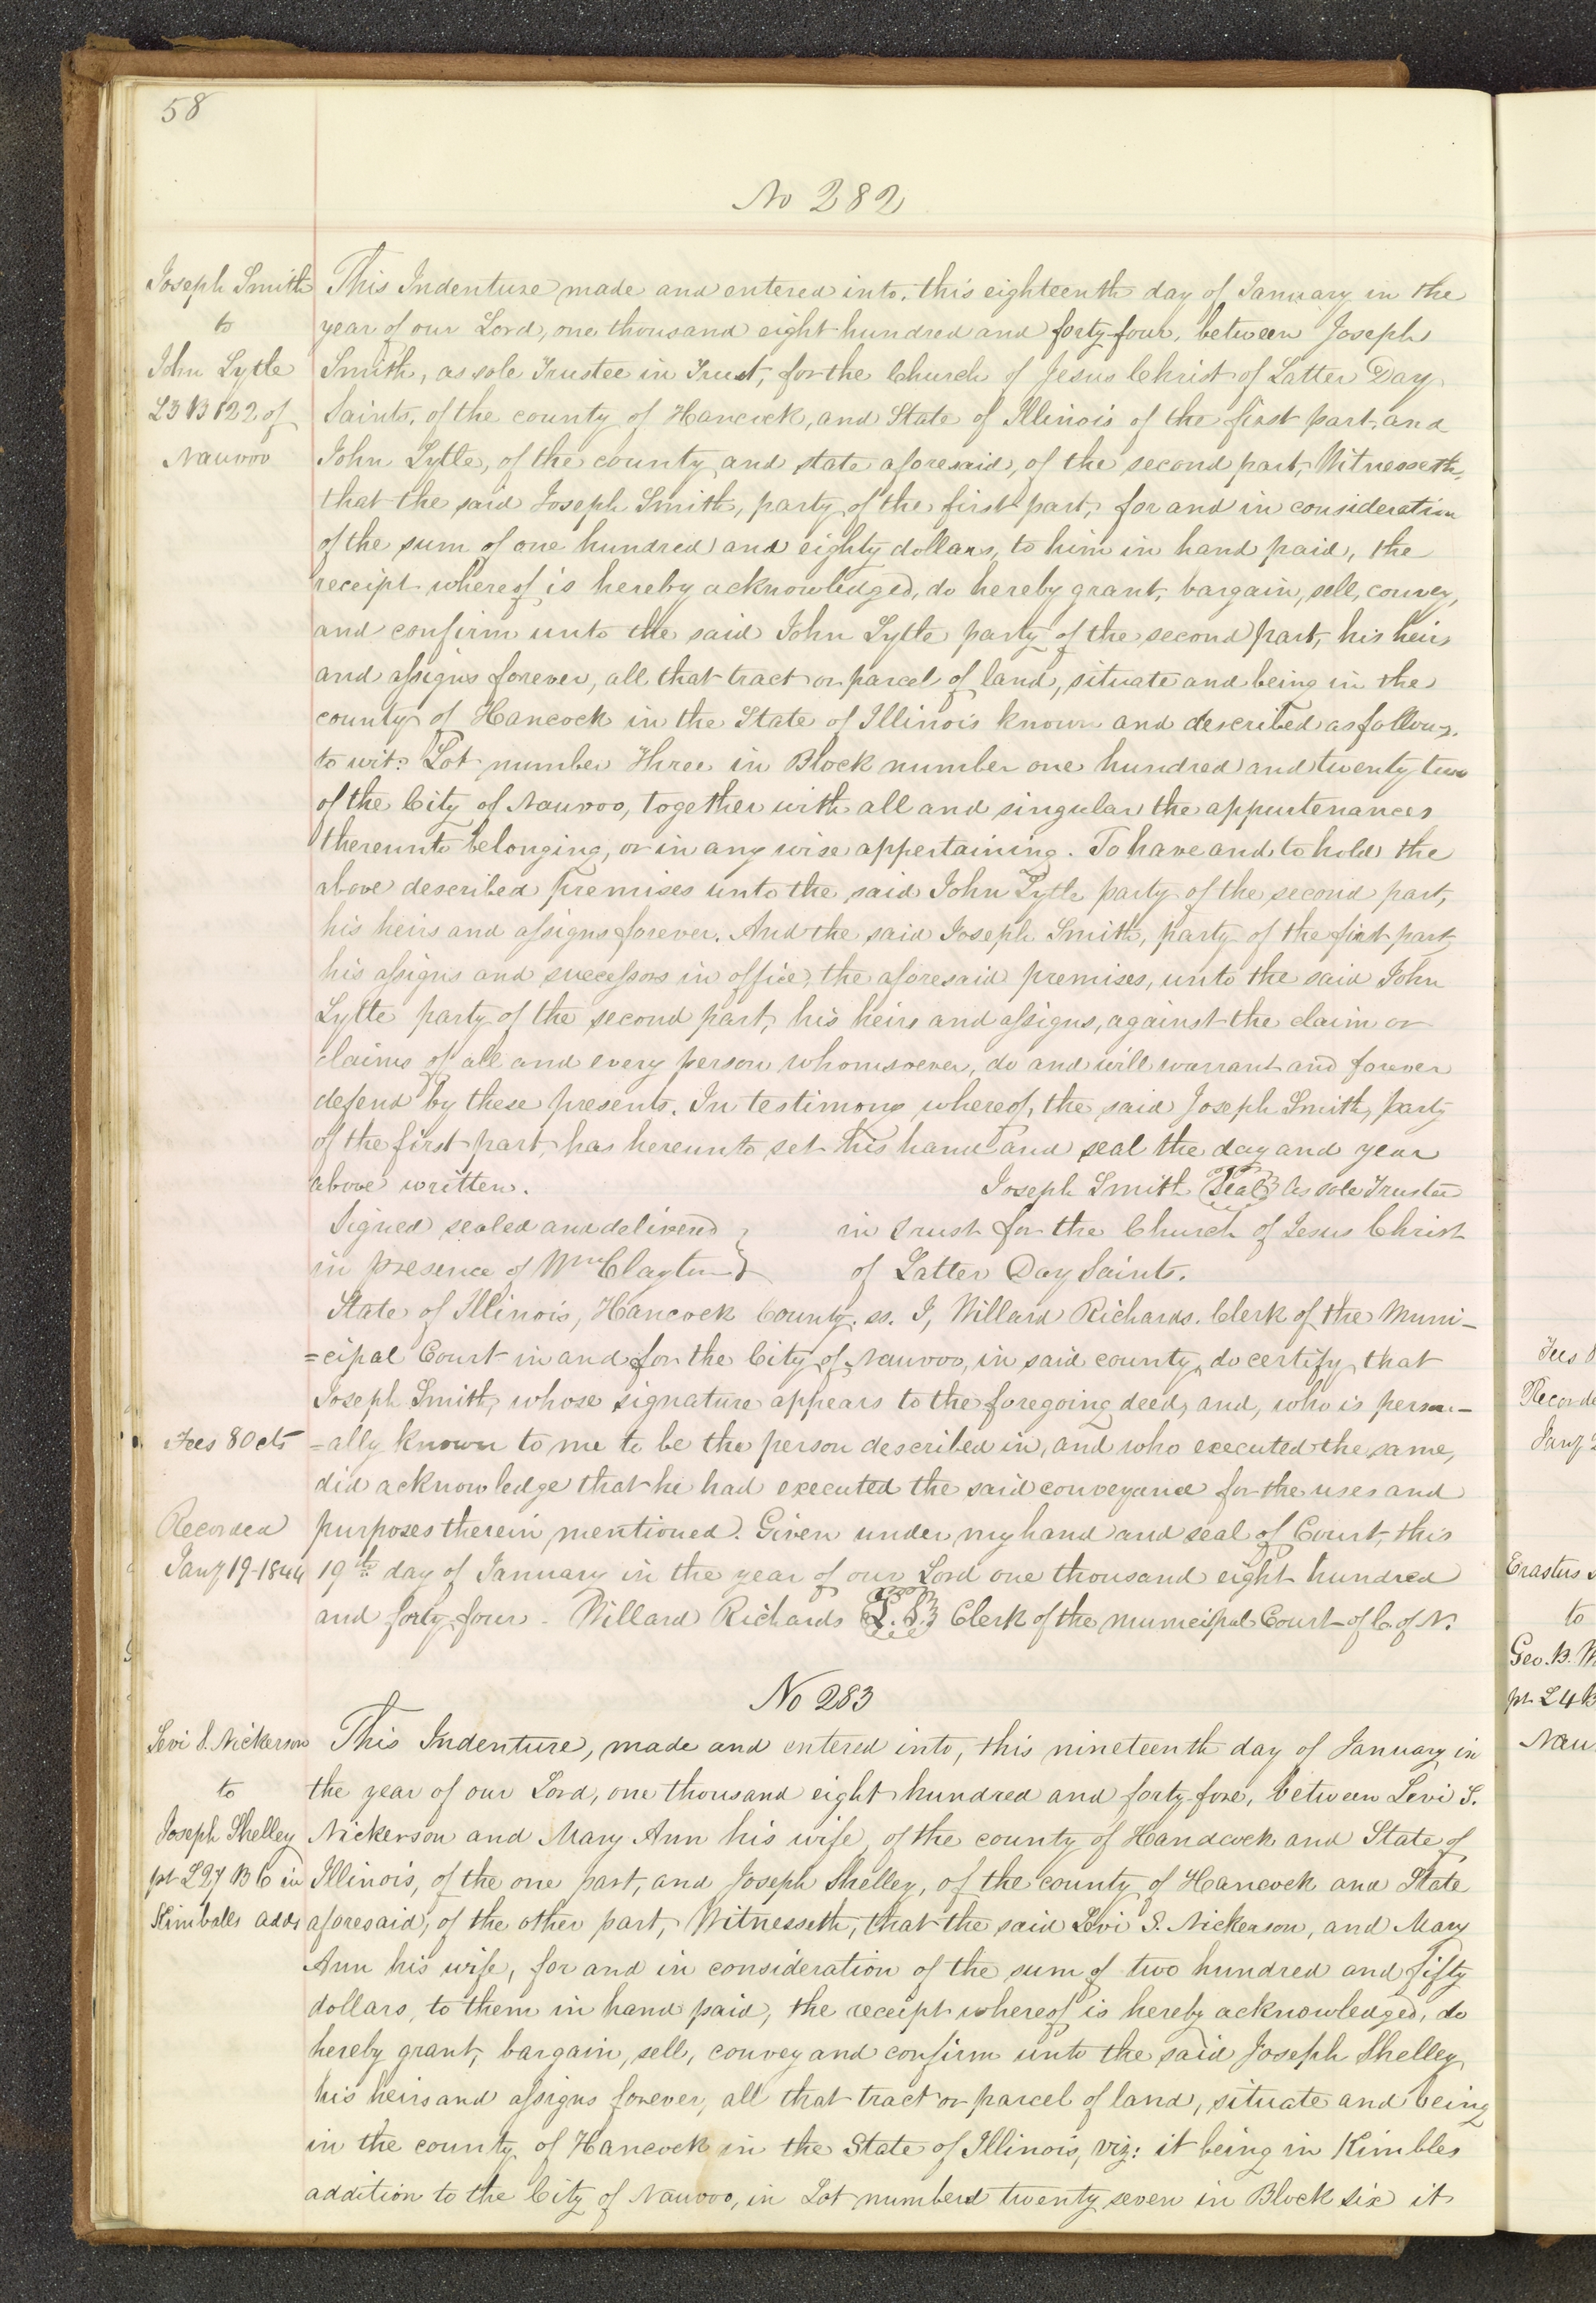 58
No 282
Joseph Smith
to
John Lytle
L3 B 122 of
Nauvoo
This Indenture made and entered into, this eighteenth day of January in the
year of our Lord, one thousand eight hundred and forty-four, between Joseph
Smith, as sole Trustee in Trust, for the Church of Jesus Christ of Latter Day
Saints, of the county of Hancock, and State of Illinois of the first part, and
John Lytle, of the county and state aforesaid, of the second part, Witnesseth,
that the said Joseph Smith, party of the first part, for and in consideration
of the sum of one hundred and eighty dollars, to him in hand paid, the
receipt whereof is hereby acknowledged, do hereby grant, bargain, sell, convey,
and confirm unto the said John Lytle party of the second part, his heirs
and assigns forever, all that tract or parcel of land, situate and being in the
county of Hancock in the State of Illinois known and described as follows.
to wit: Lot number Three in Block number one hundred and twenty two
of the City of Nauvoo, together with all and singular the appurtenances
thereunto belonging, or in any wise appertaining. To have and to hold the
above described premises unto the said John Lytle party of the second part,
his heirs and assigns forever. And the said Joseph Smith, party of the first part,
his assigns and successors in office, the aforesaid premises, unto the said John
Lytle party of the second part, his heirs and assigns, against the claim or
claims of all and every person whomsoever, do and will warrant and forever
defend by these presents. In testimony whereof, the said Joseph Smith, party
of the first part, has hereunto set his hand and seal the day and year
above written. Joseph Smith Seal As sole Trustee
Signed sealed and delivered } in trust for the Church of Jesus Christ
in presence of Wm Clayton } of Latter Day Saints.
State of Illinois, Hancock County. ss. I, Willard Richards. Clerk of the Muni-
=cipal Court in and for the City of Nauvoo, in said county, do certify that
Joseph Smith, whose signature appears to the foregoing deed, and, who is person-
Fees 80 cts
=ally known to me to be the person described in, and who executed the same,
did acknowledge that he had executed the said conveyance for the uses and
Recorded
Jany 19-1844
purposes therein mentioned. Given under my hand and seal of Court, this
19th day of January in the year of our Lord one thousand eight hundred
and forty four - Willard Richards L.S. Clerk of the municipal Court of C. of N.
No 283
Levi S. Nickerson
to
Joseph Shelley
pt L27 B 6 in
Kimballs addn
This Indenture, made and entered into, this nineteenth day of January in
the year of our Lord, one thousand eight hundred and forty-fore, between Levi S.
Nickerson and Mary Ann his wife, of the county of Handcock and State of
Illinois, of the one part, and Joseph Shelley, of the county of Hancock and State
aforesaid, of the other part, Witnesseth, that the said Levi S. Nickerson, and Mary
Ann his wife, for and in consideration of the sum of two hundred and fifty
dollars, to them in hand paid, the receipt whereof is hereby acknowledged, do
hereby grant, bargain, sell, convey and confirm unto the said Joseph Shelley,
his heirs and assigns forever, all that tract or parcel of land, situate and being
in the county of Hancock in the State of Illinois, viz: it being in Kimbles
addition to the City of Nauvoo, in Lot number twenty seven in Block six it
Fees
Recorde
Jany 2
Erastus
to
Geo. B.
pt L4 B
Nau